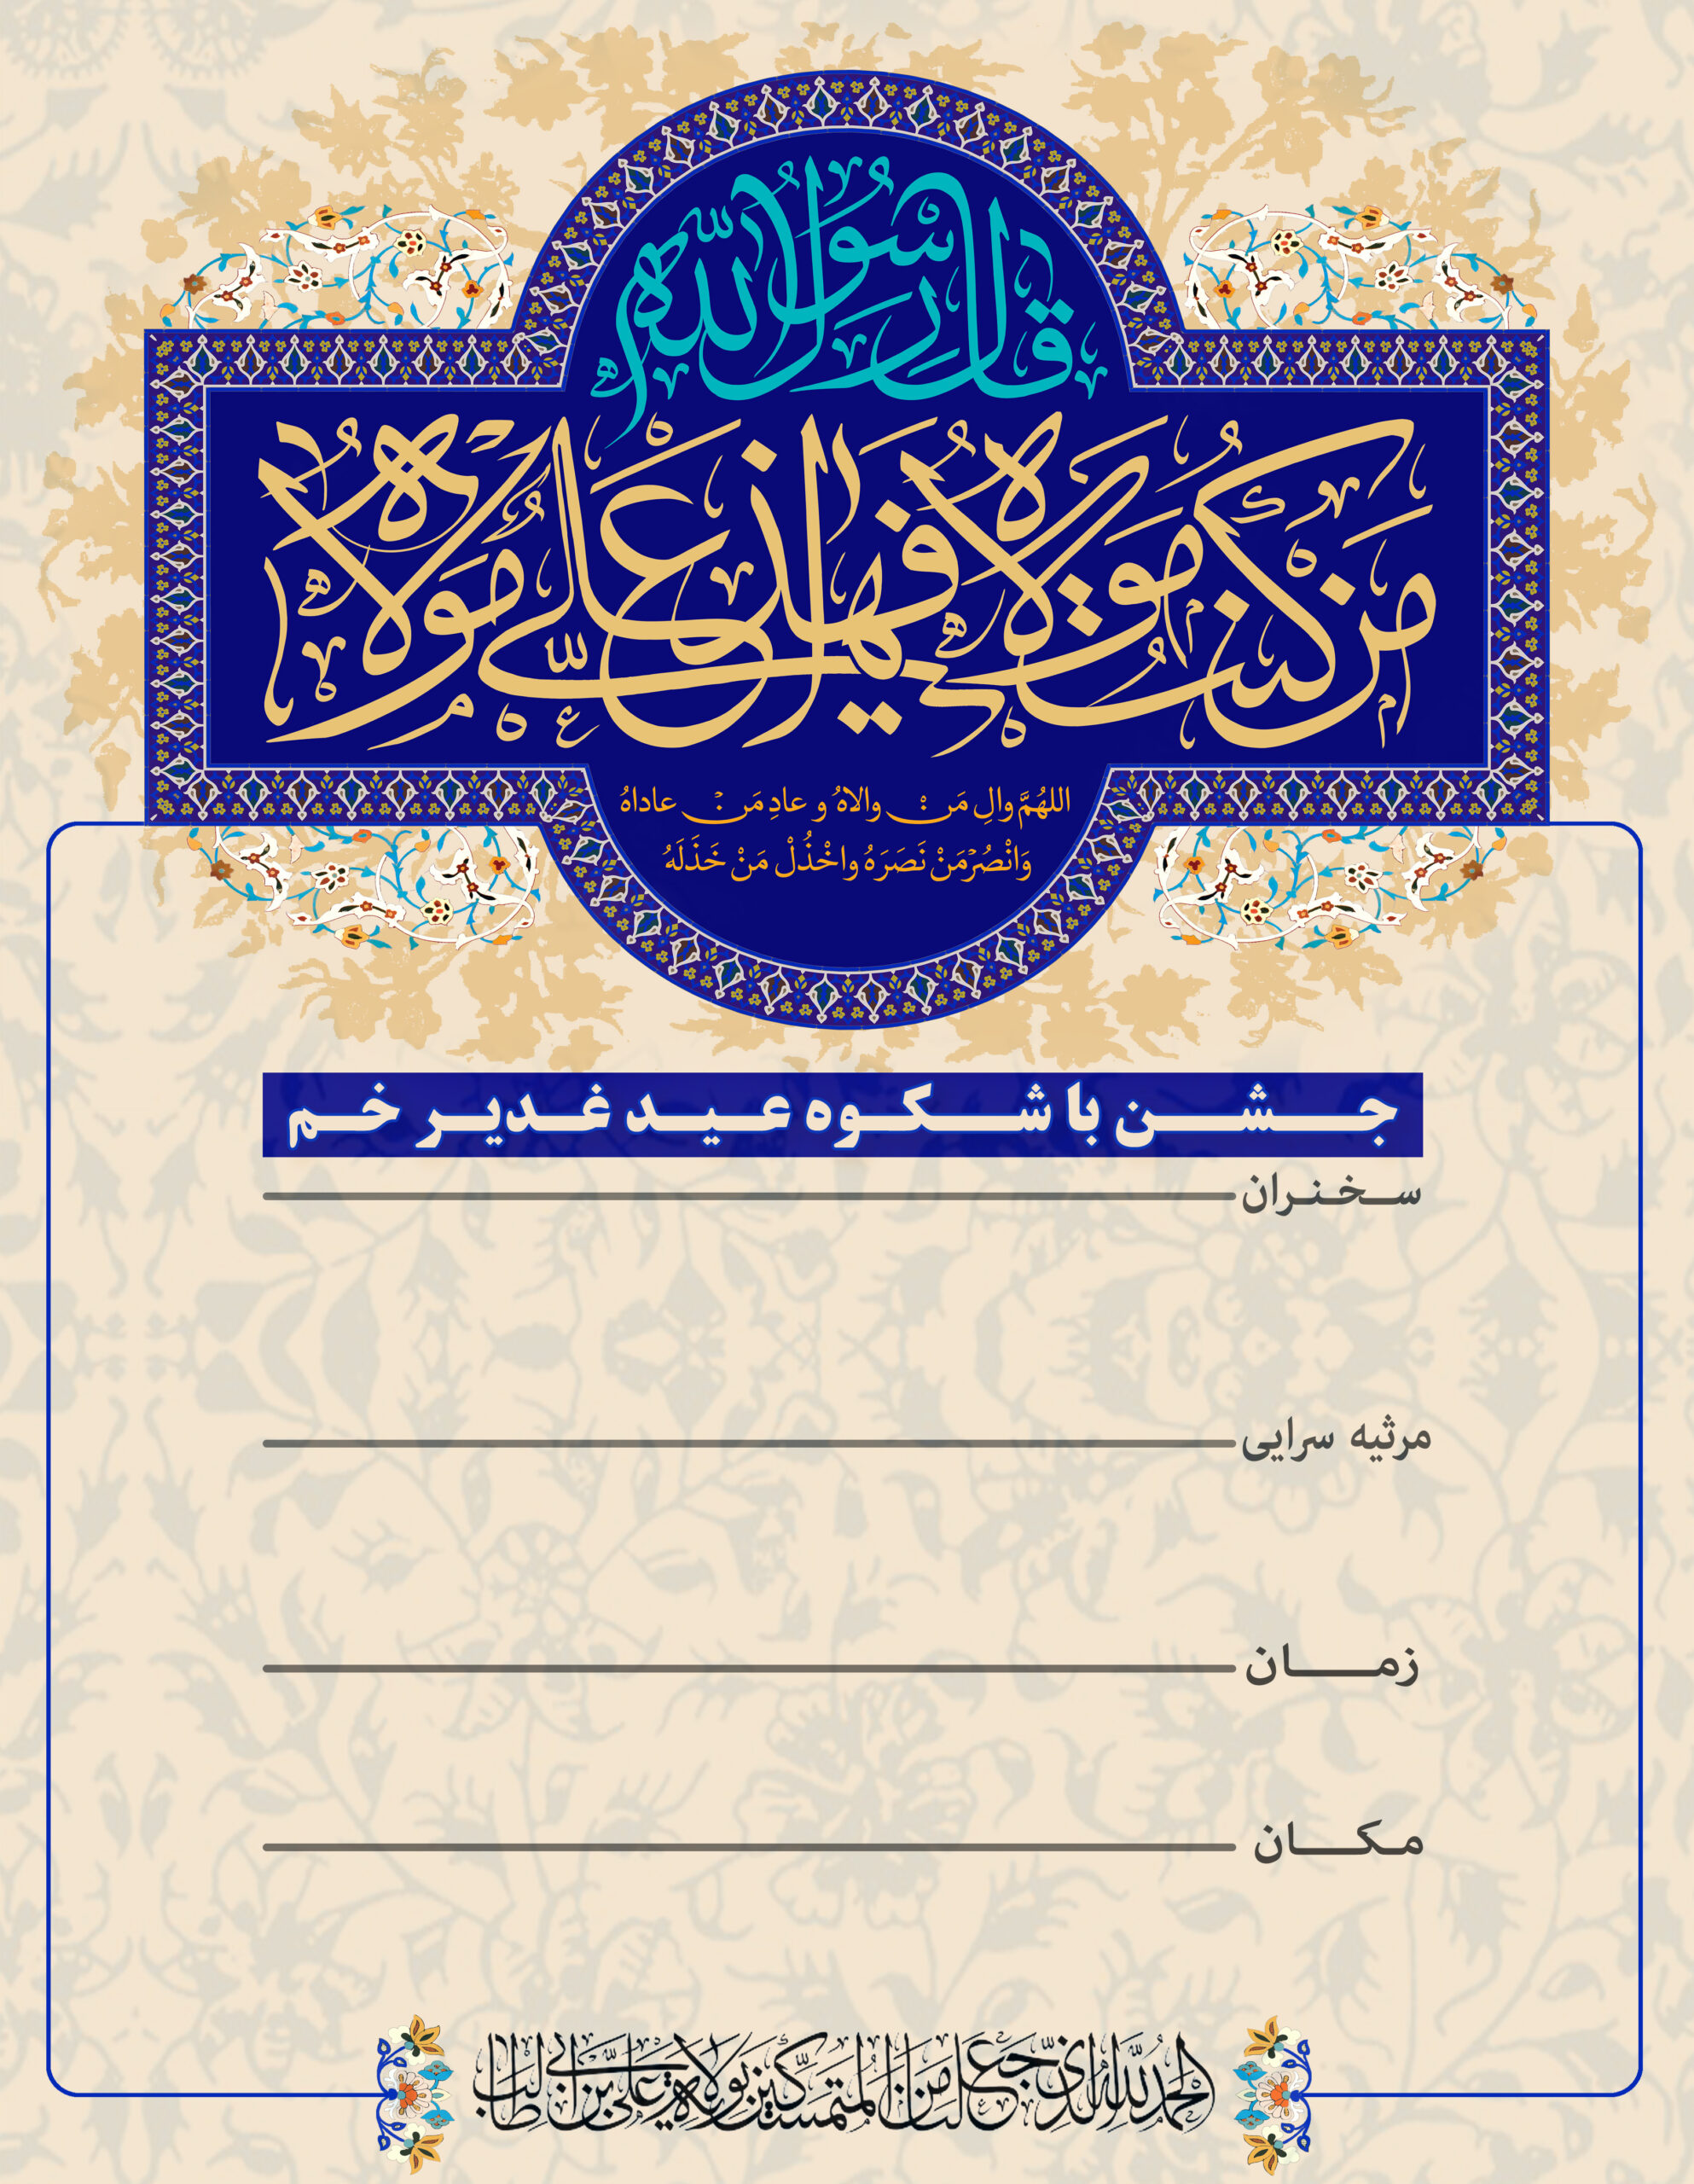 قال رسول الله
من كنت مولاه فهذا علی مولاه
اللهُمَّ والِ مَنْ والاهُ و عادِ مَنْ عاداهُ
وَانْصُرْ مَنْ نَصَرَهُ واخْذُلْ مَنْ خَذَلَهُ
جشن با شکوه عید غدیر خم
سخنران
مرثیه سرایی
زمان
مکان
الحمد لله الذی جعلنا من المتمسکین بولایة علی بن ابی طالب